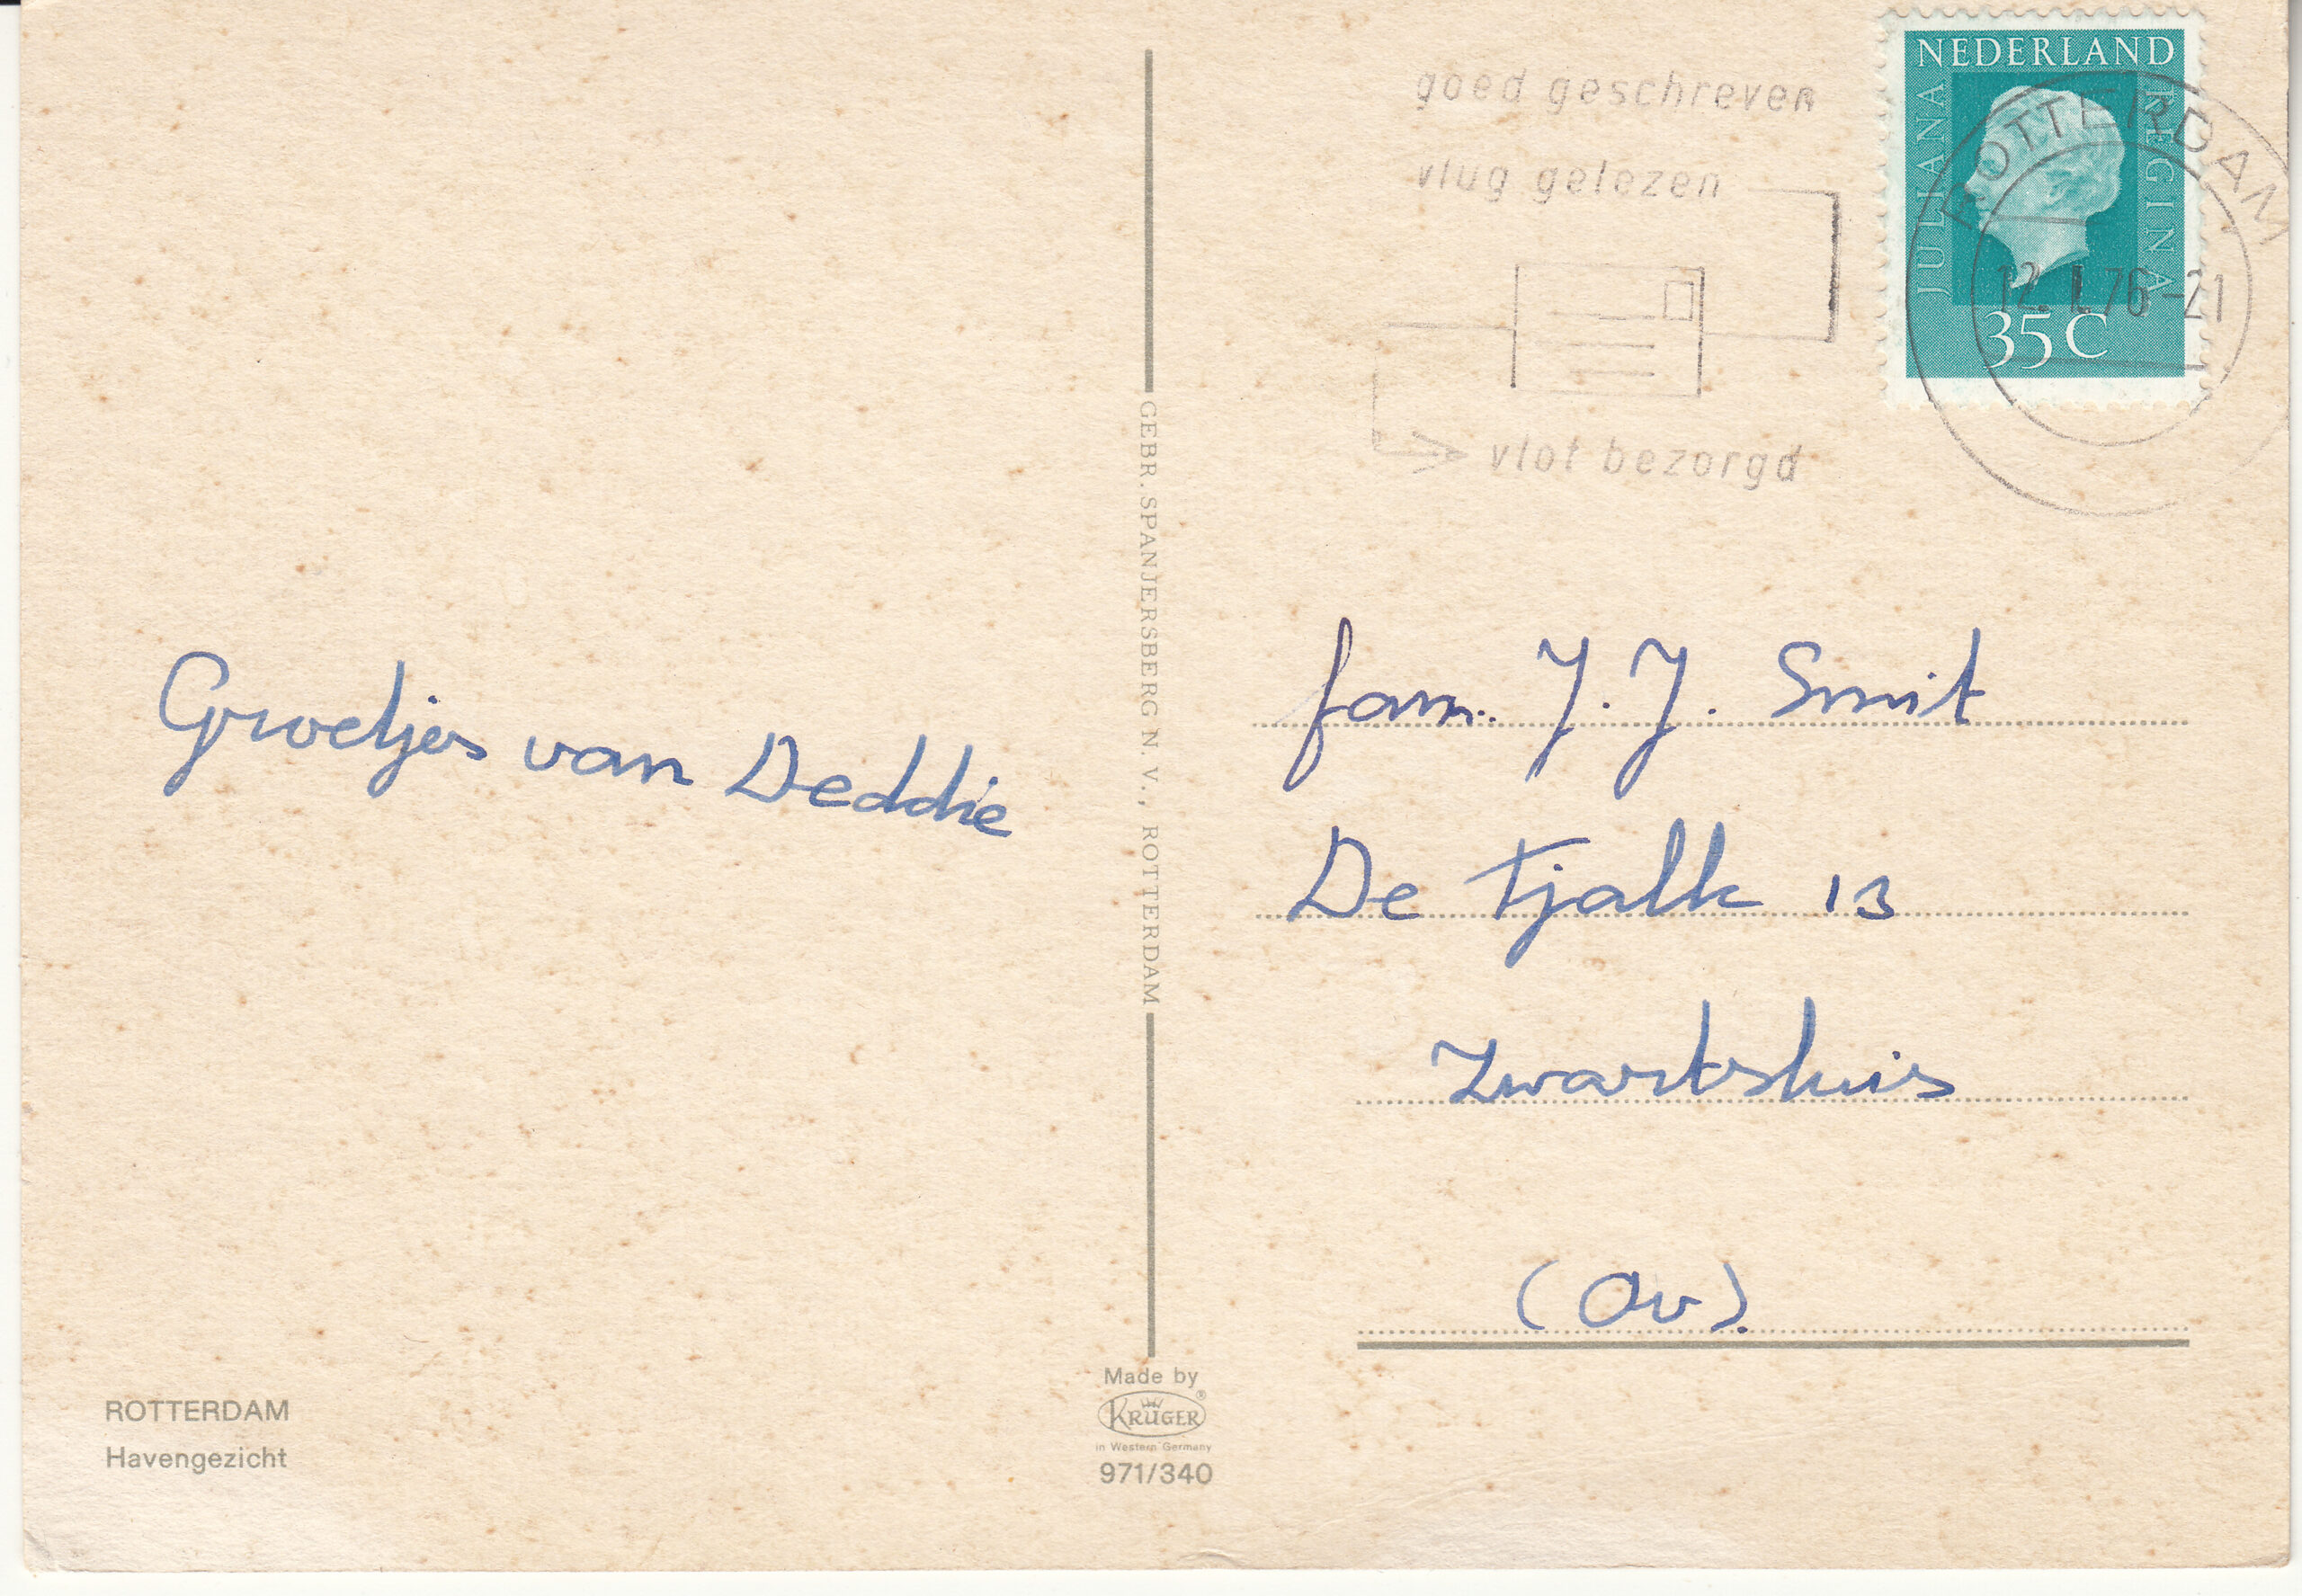 goed geschreven
vlug gelezen
vlot bezorgd
NEDERLAND
JULIANA
REGINA
35 C
ROTTERDAM
12.I.76-21
Groetjes van Deddie
fam. J.J. Smit
De Tjalk 13
Zwartsluis
(Ov).
GEBR. SPANJERSBERG N.V., ROTTERDAM
ROTTERDAM
Havengezicht
Made by
KRÜGER
®
in Western Germany
971/340